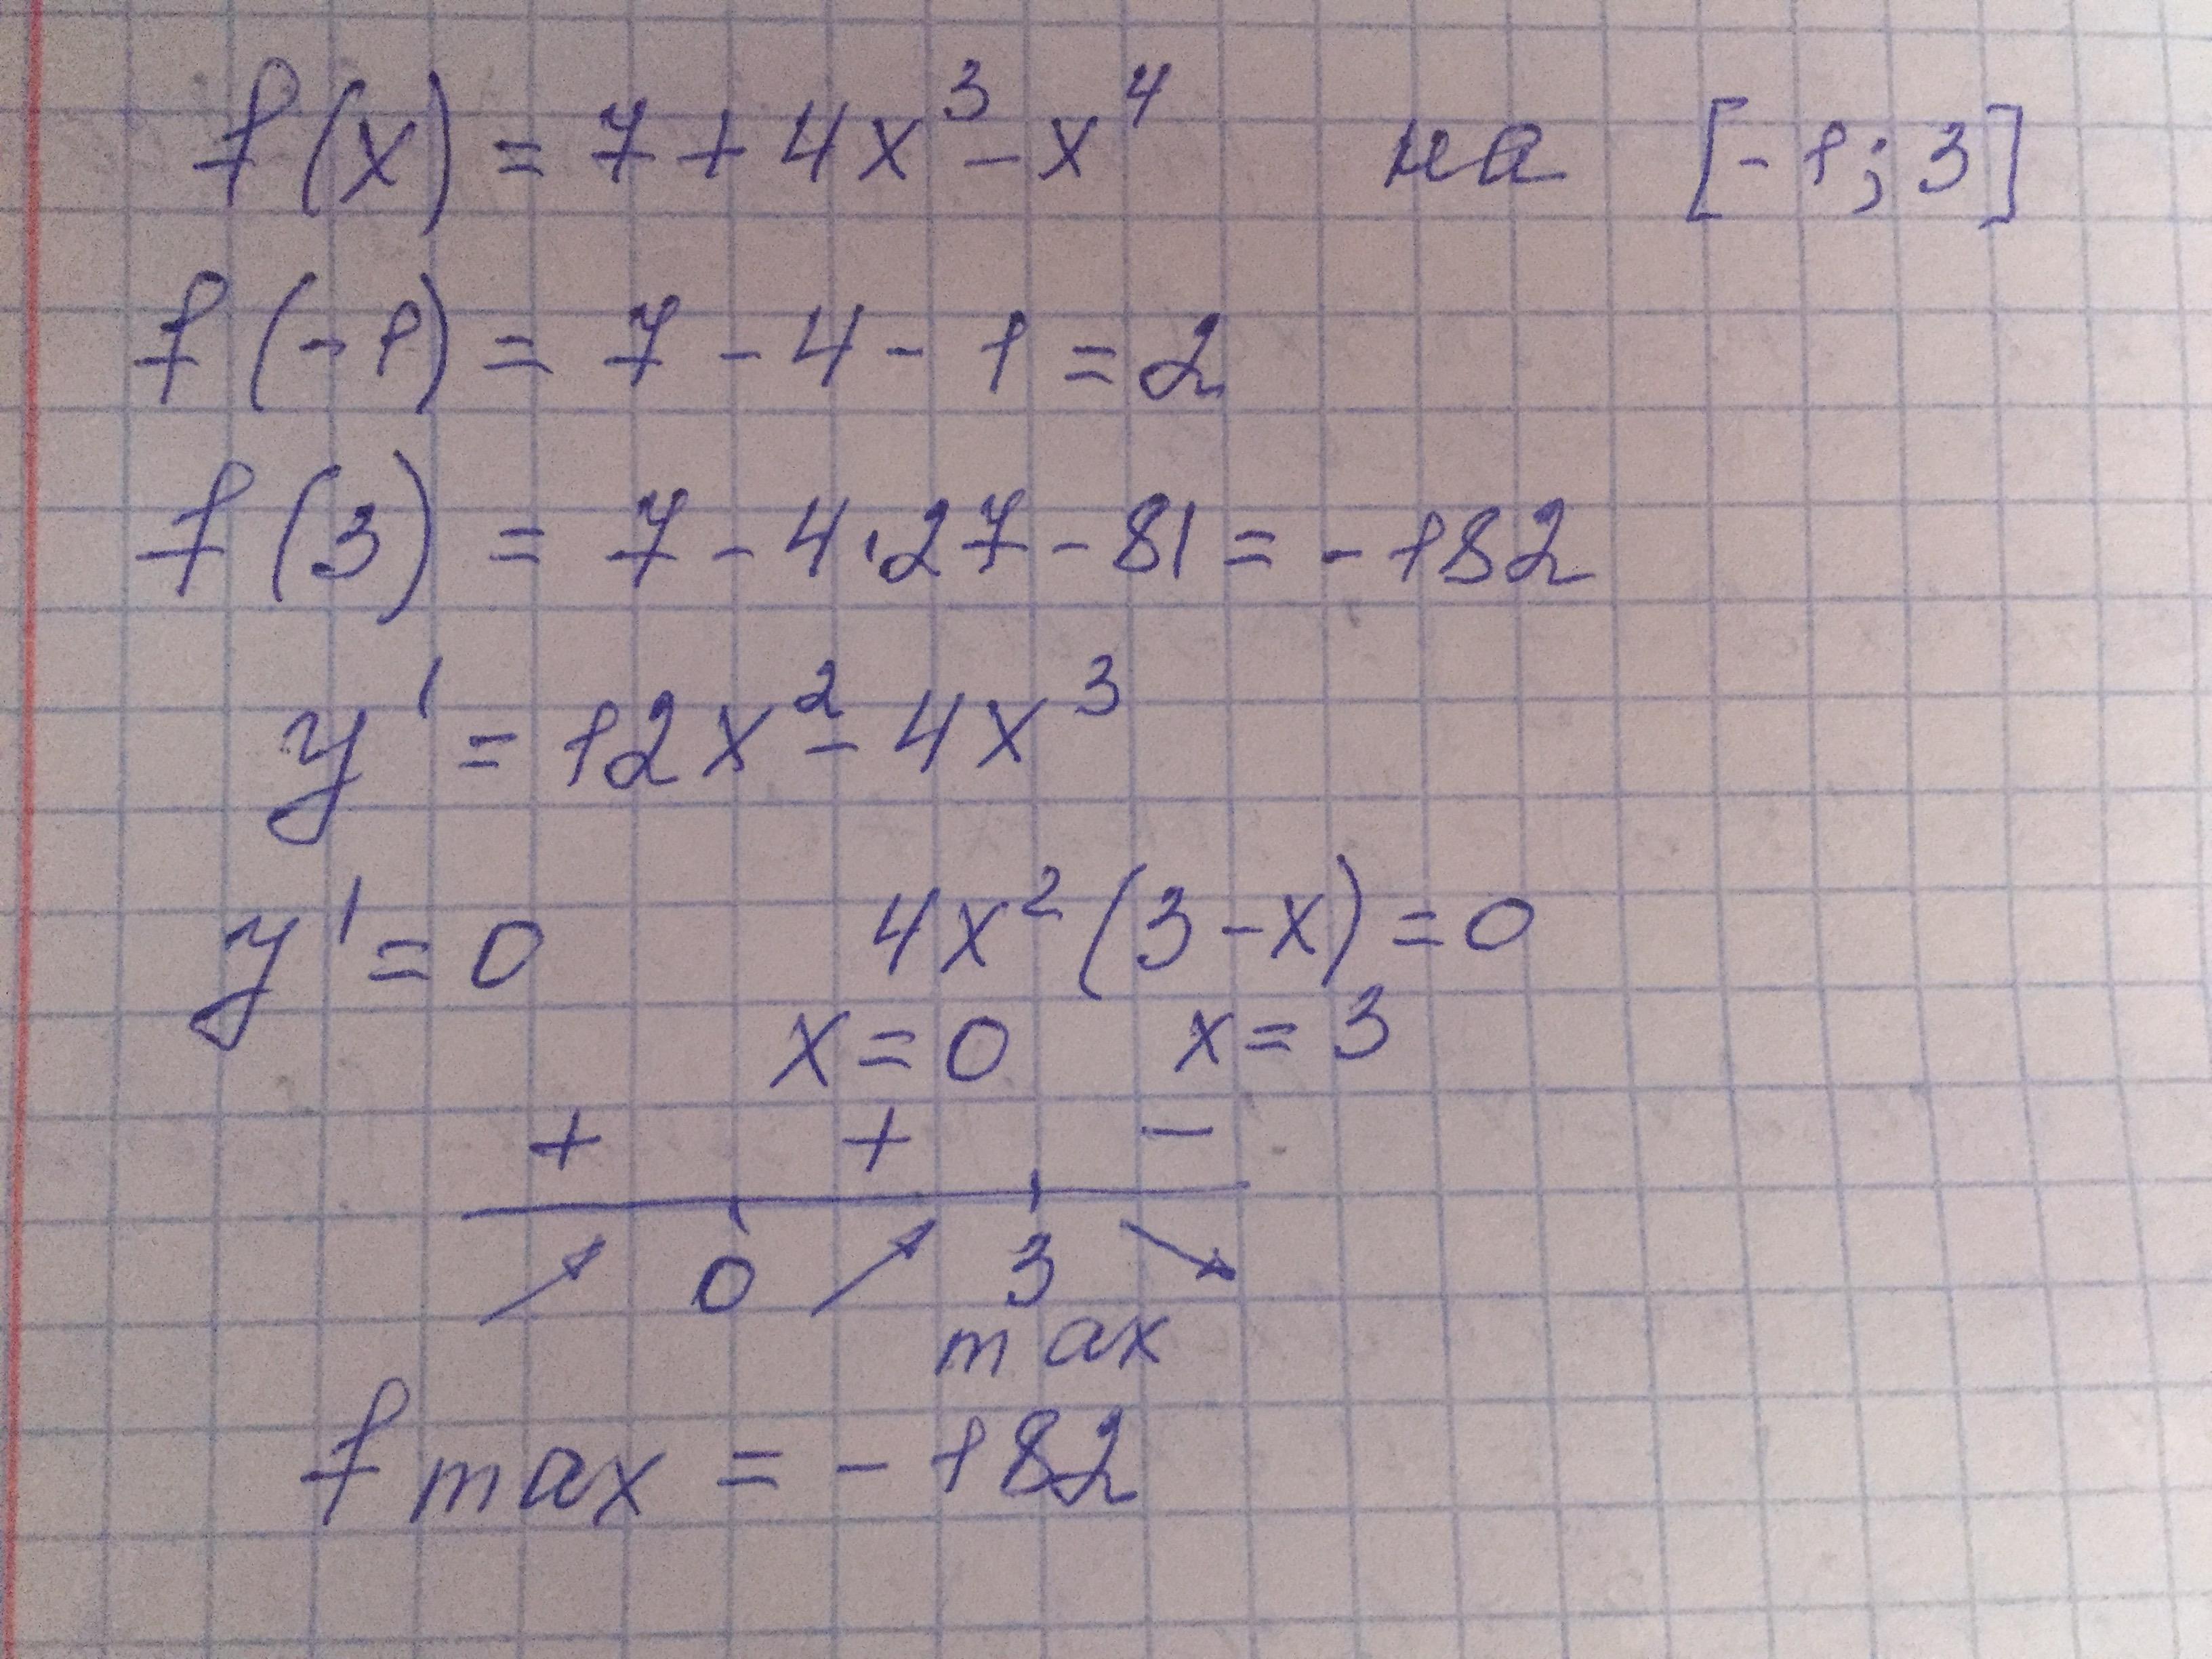 f(x) = 7 + 4x³ - x⁴ на [-1; 3]
f(-1) = 7 - 4 - 1 = 2
f(3) = 7 - 4·27 - 81 = -182
y' = 12x² - 4x³
y' = 0 4x² (3 - x) = 0
x = 0 x = 3
+ + -
0 3
max
f max = -182